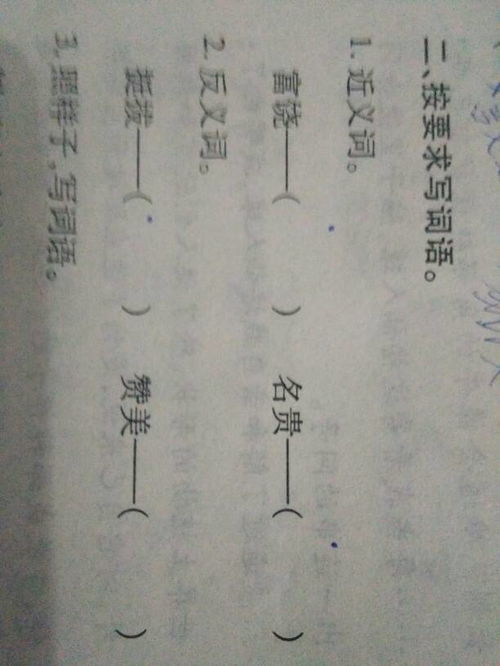 二、按要求写词语。
1. 近义词。
富饶——( ) 名贵——( )
2. 反义词。
挺拔——( ) 赞美——( )
3. 照样子,写词语。